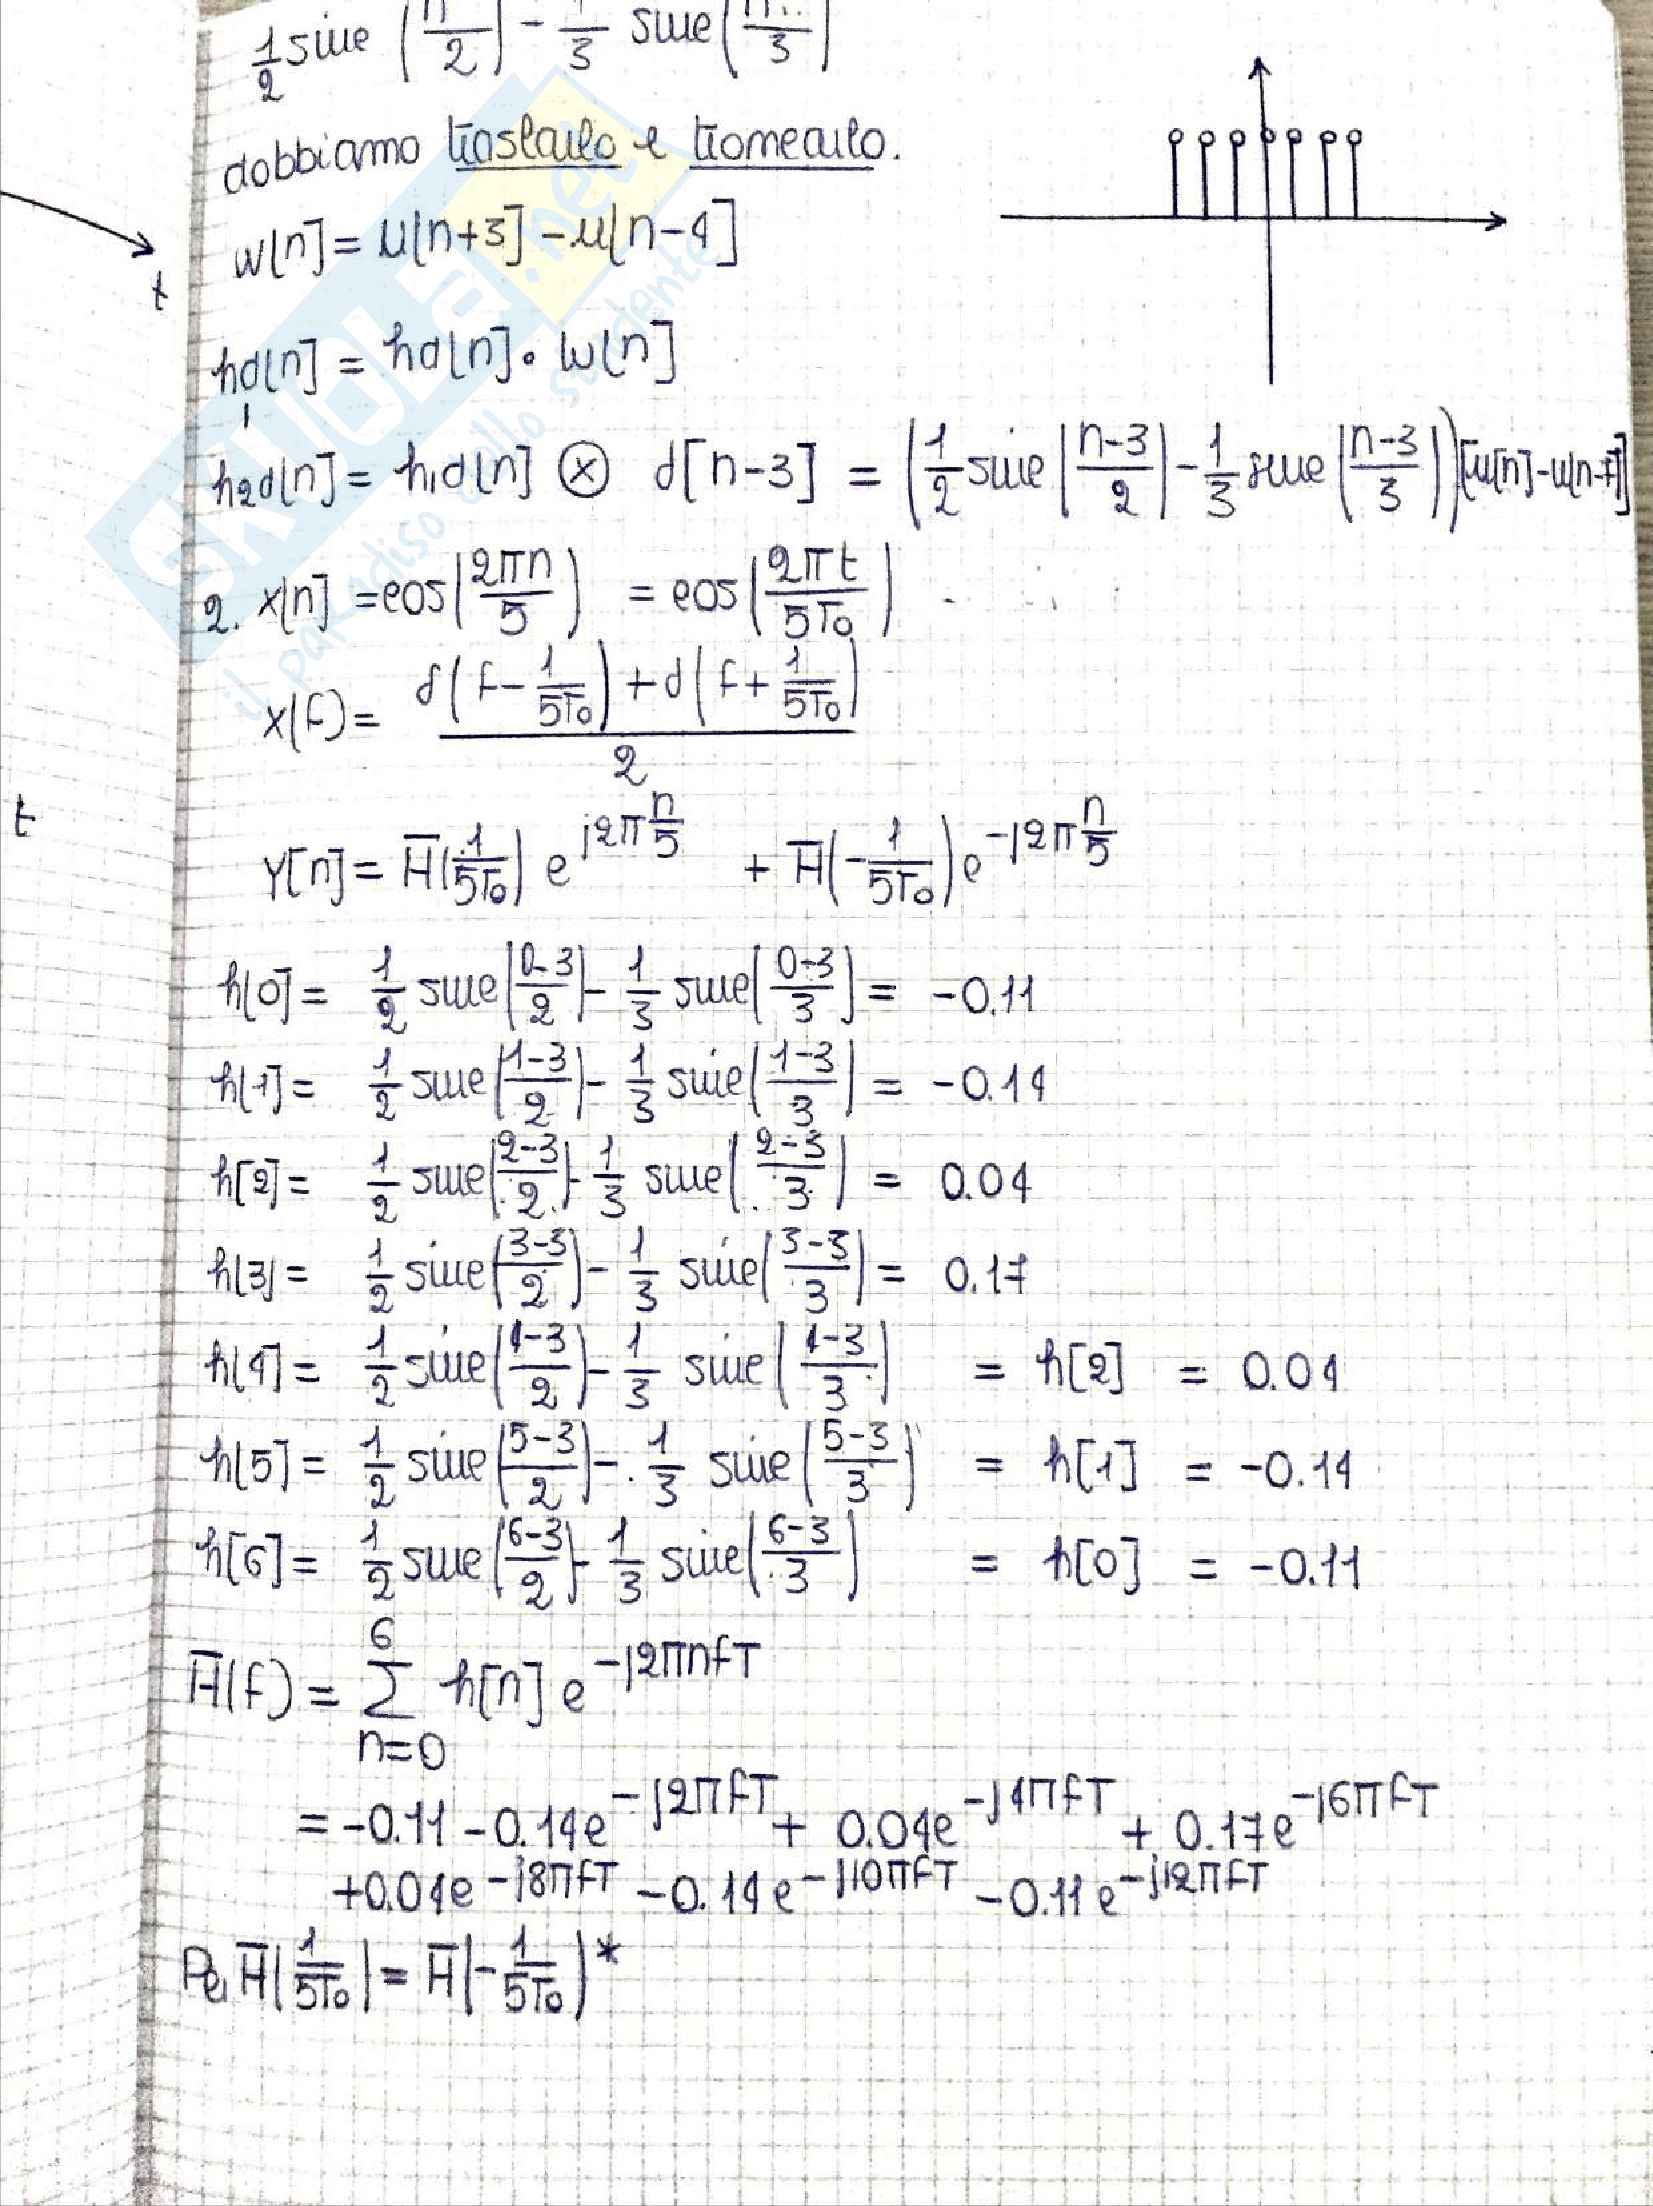 1/2 sinc (n/2) - 1/3 sinc (n/3)
dobbiamo traslarlo e troncarlo.
w[n] = u[n+3] - u[n-4]
t
hd[n] = hd[n] · w[n]
1
h2d[n] = h1d[n] ⊗ d[n-3] = (1/2 sinc (n-3/2) - 1/3 sinc (n-3/3)) [u[n] - u[n-7]]
2. x[n] = cos(2πn/5) = cos(2πt/5T₀)
x(f) = d(f - 1/5T₀) + d(f + 1/5T₀) / 2
t
Y[n] = H̄(1/5T₀) e^{j2π n/5} + H̄(-1/5T₀) e^{-j2π n/5}
h[0] = 1/2 sinc(0-3/2) - 1/3 sinc(0-3/3) = -0.11
h[1] = 1/2 sinc(1-3/2) - 1/3 sinc(1-3/3) = -0.14
h[2] = 1/2 sinc(2-3/2) - 1/3 sinc(2-3/3) = 0.04
h[3] = 1/2 sinc(3-3/2) - 1/3 sinc(3-3/3) = 0.17
h[4] = 1/2 sinc(4-3/2) - 1/3 sinc(4-3/3) = h[2] = 0.04
h[5] = 1/2 sinc(5-3/2) - 1/3 sinc(5-3/3) = h[1] = -0.14
h[6] = 1/2 sinc(6-3/2) - 1/3 sinc(6-3/3) = h[0] = -0.11
H̄(f) = Σ_{n=0}^{6} h[n] e^{-j2πnfT}
= -0.11 - 0.14e^{-j2πfT} + 0.04e^{-j4πfT} + 0.17e^{-j6πfT}
+0.04e^{-j8πfT} - 0.14e^{-j10πfT} - 0.11e^{-j12πfT}
H̄(1/5T₀) = H̄(-1/5T₀)*
SKUOLA.net
il paradiso dello studente